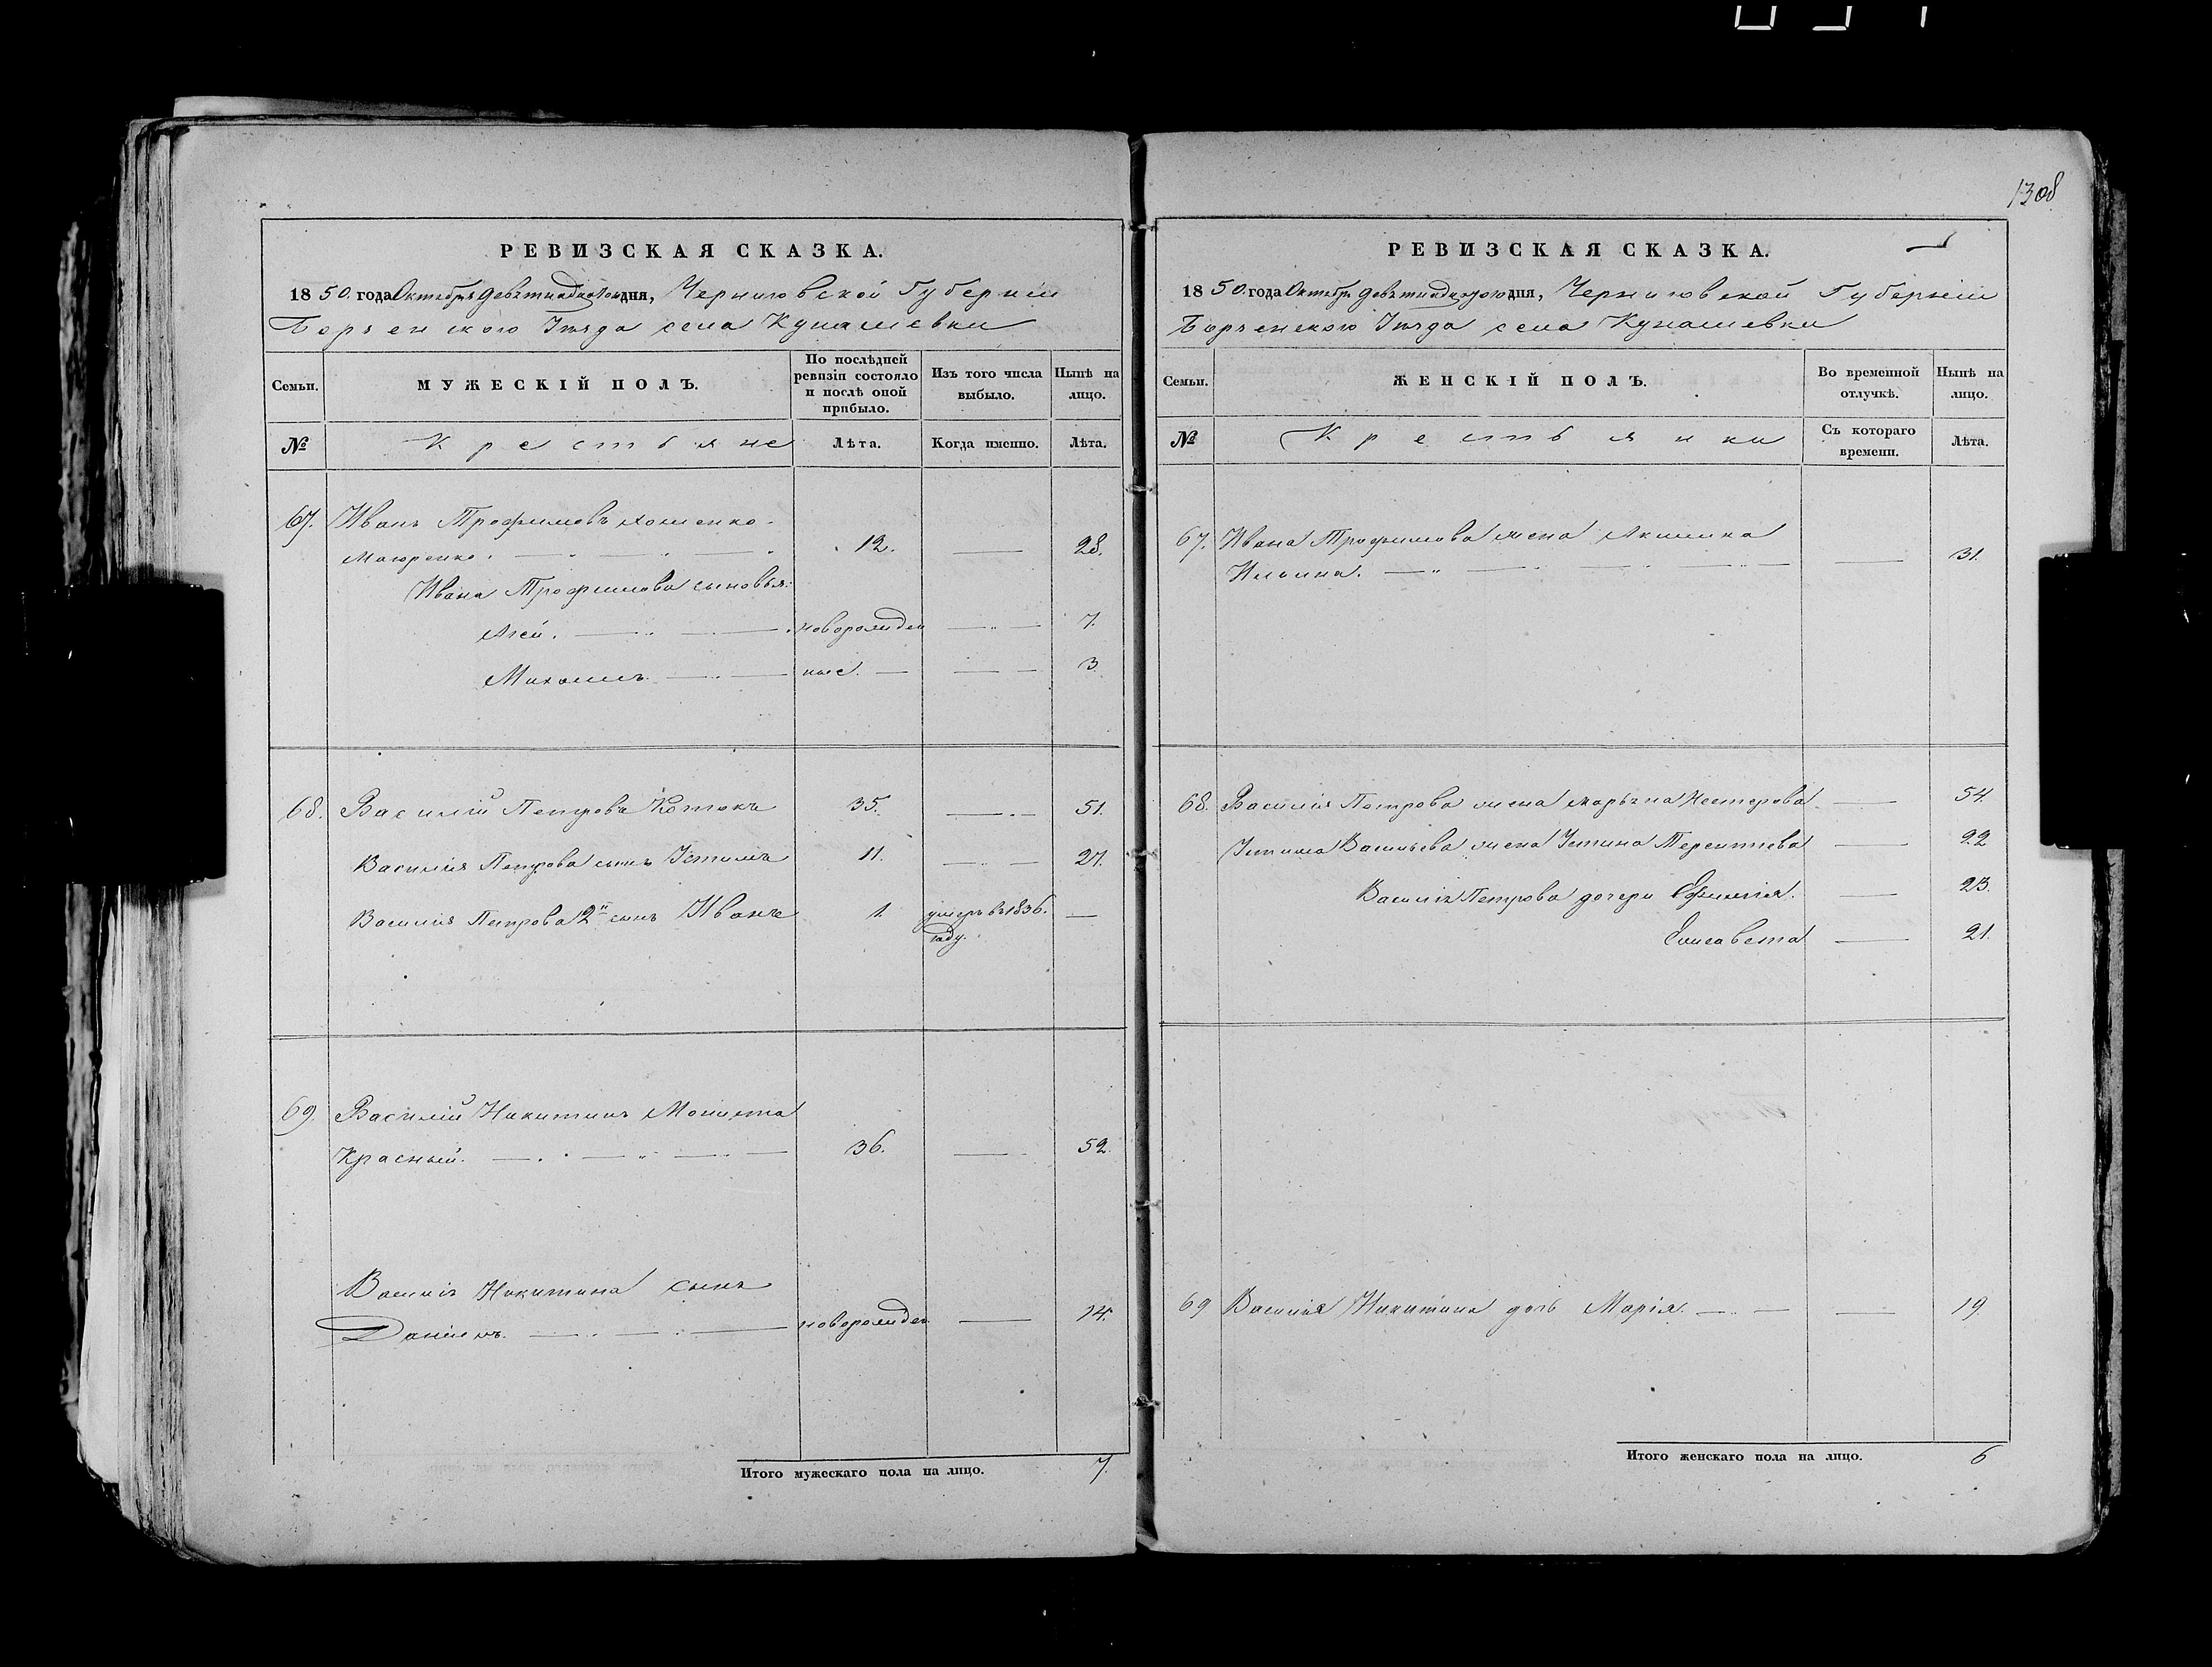 1308
РЕВИЗСКАЯ СКАЗКА.
1850. года Октября девятнадцатого дня, Черниговской Губерніи
Борзенского Уѣзда села Кунашевки
Семьи.
МУЖЕСКІЙ ПОЛЪ.
По послѣдней ревизіи состояло и послѣ оной прибыло.
Изъ того числа выбыло.
Нынѣ на лицо.
№
Крестьяне
Лѣта.
Когда именно.
Лѣта.
67. Иванъ Трофимовъ
12. 28.
Ивана Трофимова сыновья:
новорожден 7.
Михаилъ ные. 3
68. Василій Петровъ 35. 51.
Василія Петрова сынъ Устимъ 11. 27.
Василія Петрова 2й сынъ Иванъ 1. умеръ въ 1836.
году.
69. Василій Никитинъ
Красный. 36. 52.
Василія Никитина сынъ
Даніилъ. новорожден. 14.
Итого мужескаго пола на лицо. 7.
РЕВИЗСКАЯ СКАЗКА.
1850. года Октября девятнадцатого дня, Черниговской Губерніи
Борзенского Уѣзда села Кунашевки
Семьи.
ЖЕНСКІЙ ПОЛЪ.
Во временной отлучкѣ.
Нынѣ на лицо.
№
Крестьянки
Съ котораго времени.
Лѣта.
67. Ивана Трофимова жена Акилина
Ильина. 31.
68. Василія Петрова жена Нестерова 54.
Устима Васильева жена Устина Терентіева 22
Василія Петрова дочери Ефимія. 23.
Елисавета 21.
69 Василія Никитина дочь Марія. 19.
Итого женскаго пола на лицо. 6